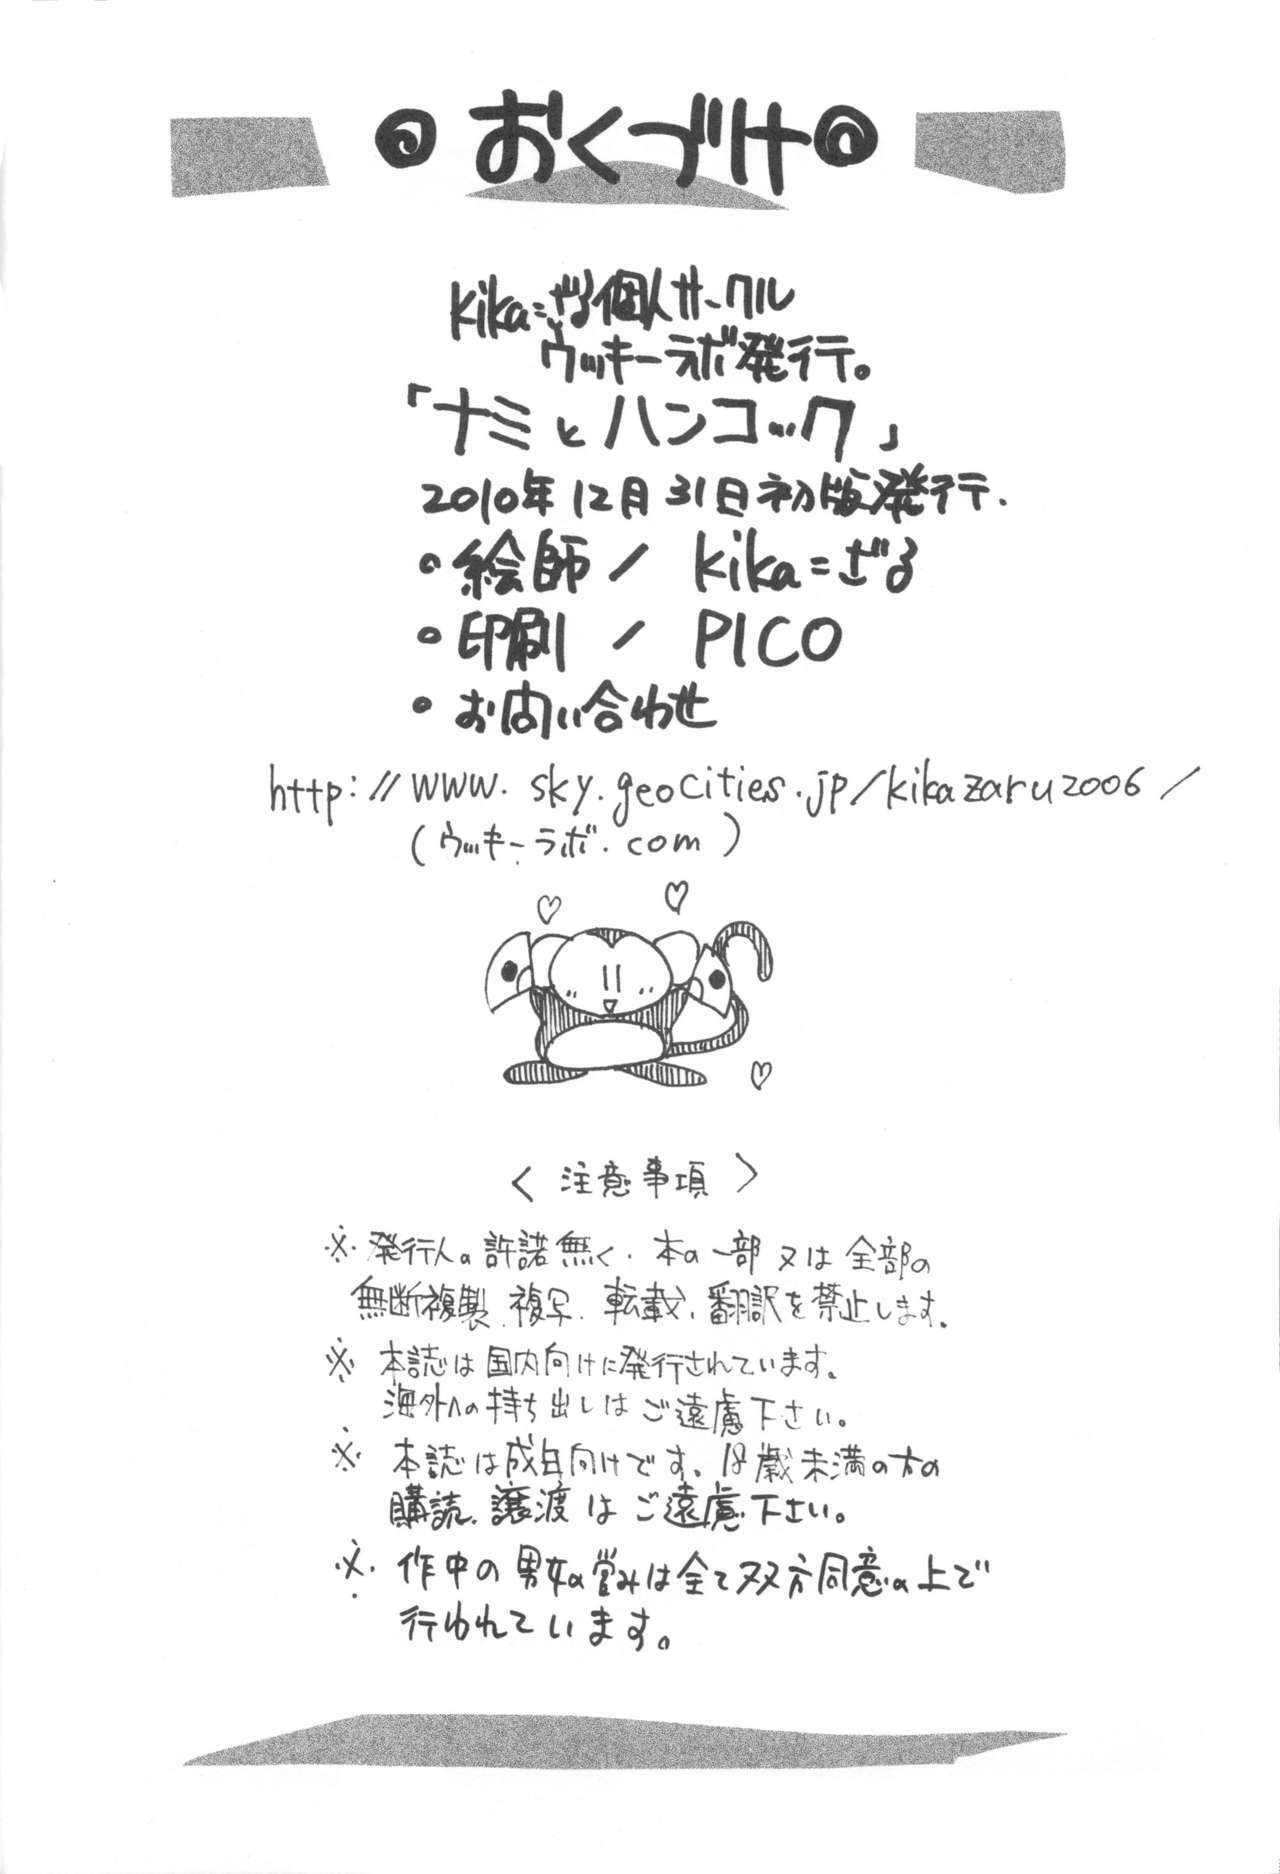 おくづけ
kika=ざる個人サークル
ウッキーラボ発行。
「ナミとハンコック」
2010年12月31日初版発行.
・絵師／kika=ざる
・印刷／PICO
・お問い合わせ
http://www.sky.geocities.jp/kikazaru2006/
(ウッキーラボ.com)
〈注意事項〉
※発行人の許諾無く、本の一部又は全部の
無断複製、複写、転載、翻訳を禁止します。
※本誌は国内向けに発行されています。
海外への持ち出しはご遠慮下さい。
※本誌は成年向けです。18歳未満の方の
購読、譲渡はご遠慮下さい。
※作中の男女の営みは全て双方同意の上で
行われています。